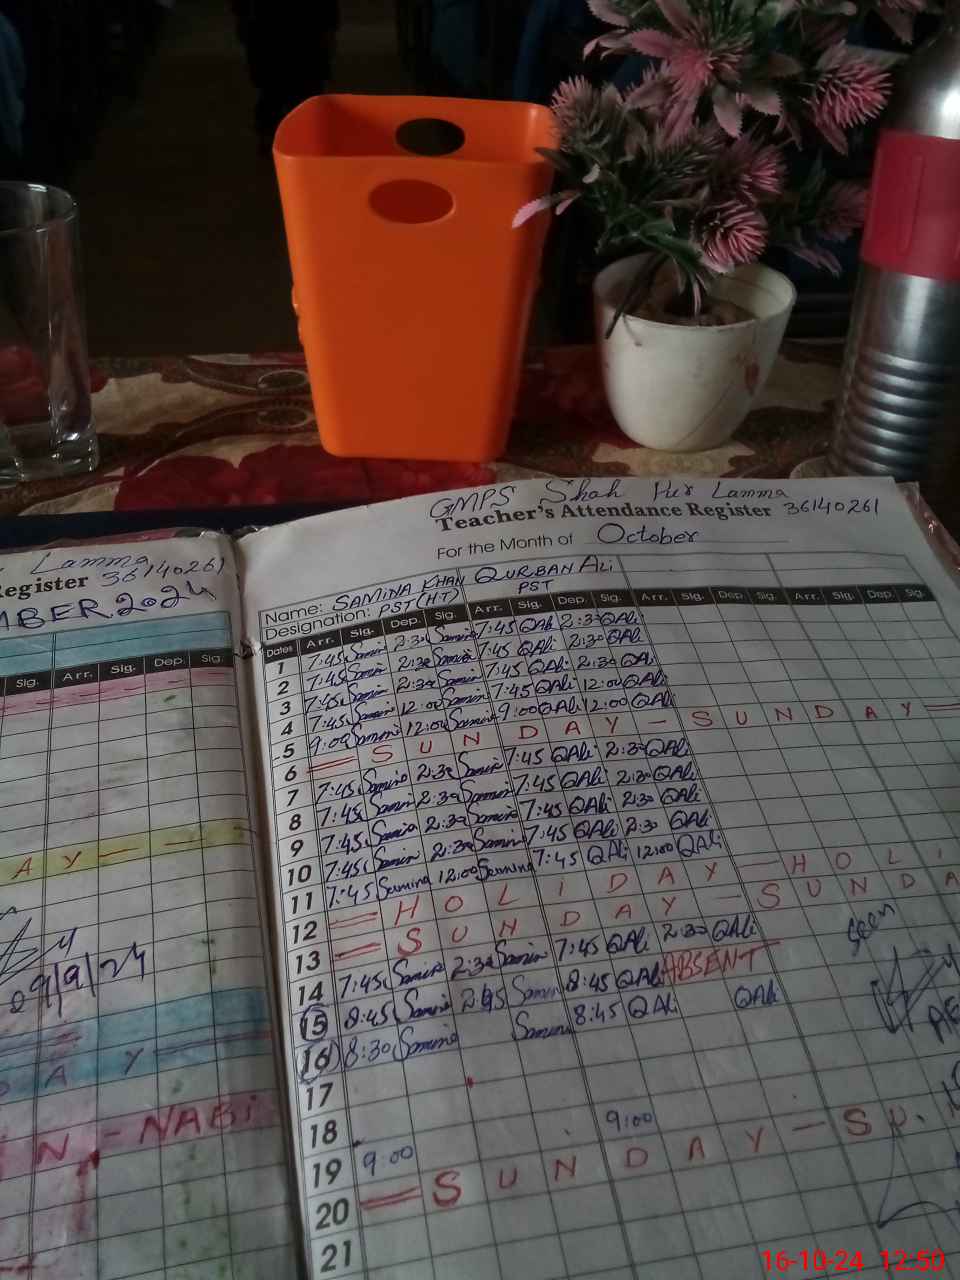 GMPS Shah Pur Lamma
Teacher's Attendance Register 36140261
For the Month of October
Lamma
Register 36140261
MBER. 2024
Name: SAMINA KHAN QURBAN Ali
Designation: PST (H.T) PST
Dates Arr. Sig. Dep. Sig. Arr. Sig. Dep. Sig. Arr. Sig. Dep. Sig. Arr. Sig. Dep. Sig.
Sig. Arr. Sig. Dep. Sig.
1 7:45 Samina 2:30 Samina 7:45 QAli 2:30 QAli
2 7:45 Samina 2:30 Samina 7:45 QAli 2:30 QAli
3 7:45 Samina 2:30 Samina 7:45 QAli 2:30 QAli
4 7:45 Samina 12:00 Samina 7:45 QAli 12:00 QAli
5 9:00 Samina 12:00 Samina 9:00 QAli 12:00 QAli
6 = S U N D A Y - S U N D A Y =
7 7:45 Samina 2:30 Samina 7:45 QAli 2:30 QAli
8 7:45 Samina 2:30 Samina 7:45 QAli 2:30 QAli
9 7:45 Samina 2:30 Samina 7:45 QAli 2:30 QAli
10 7:45 Samina 2:30 Samina 7:45 QAli 2:30 QAli
11 7:45 Samina 12:00 Samina 7:45 QAli 12:00 QAli
12 = H O L i D A Y - H O L i
13 = S U N D A Y - S U N D A
14 7:45 Samina 2:30 Samina 7:45 QAli 2:30 QAli
15 8:45 Samina 2:45 Samina 8:45 QAli ABSENT
16 8:30 Samina Samina 8:45 QAli QAli
17
18
19 9:00 9:00
20 = S U N D A Y - S U
21
seen
A Y
09/9/24
D A Y
i N - NABi
16-10-24 12:50